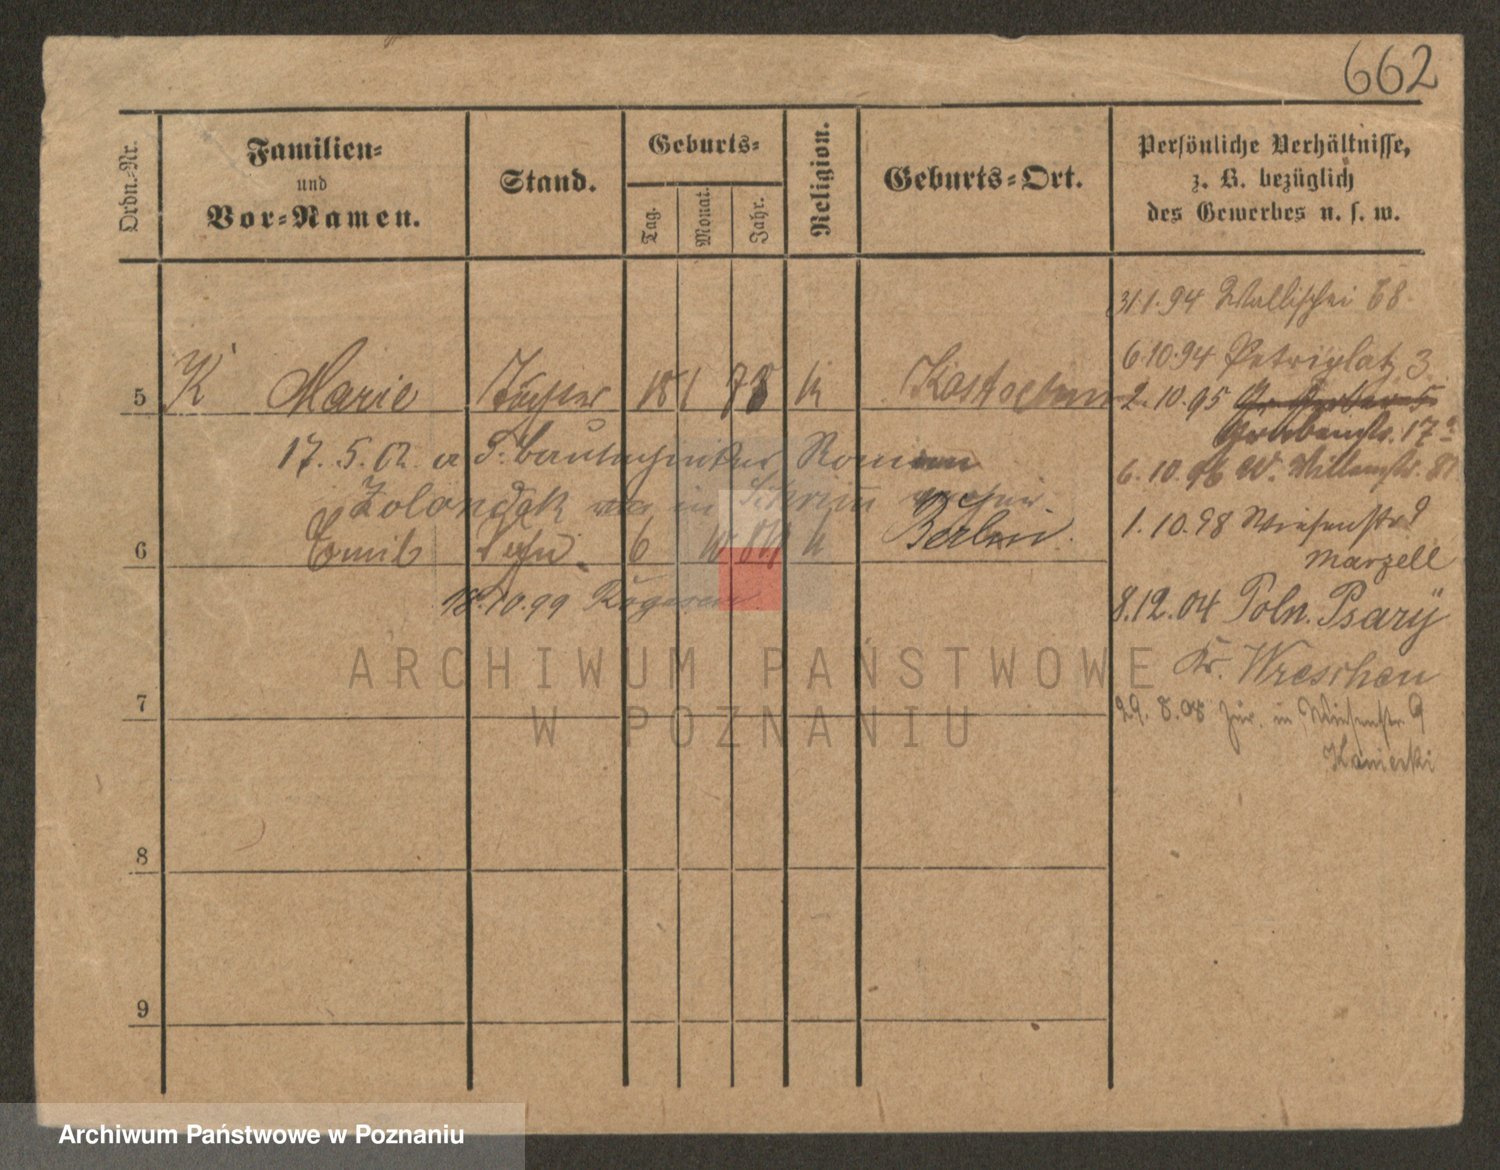 662
Ordn.-Nr.
Familien-
und
Vor-Namen.
Stand.
Geburts-
Tag.
Monat.
Jahr.
Religion.
Geburts-Ort.
Persönliche Verhältnisse,
z. B. bezüglich
des Gewerbes u. s. w.
31.1.94 Wallischei 68
6.10.94 Petriplatz 3
5 K Marie Tochter 18 1 78 k Kostschin
2.10.95
Grabenstr. 17a
17. 5. 02 Bautechniker Roman
6. 10. 96 W.
Zolondek in Schrimm
1. 10. 98 Wiesenstr 9
6 Emil Sohn 6 k Berlin
Marzell
18.10.99 Rogasen
8.12.04 Poln. Psary
Kr. Wreschen
7
29. 8. 08 Zur. in Wiesenstr 9
8
9
ARCHIWUM PAŃSTWOWE
W POZNANIU
Archiwum Państwowe w Poznaniu